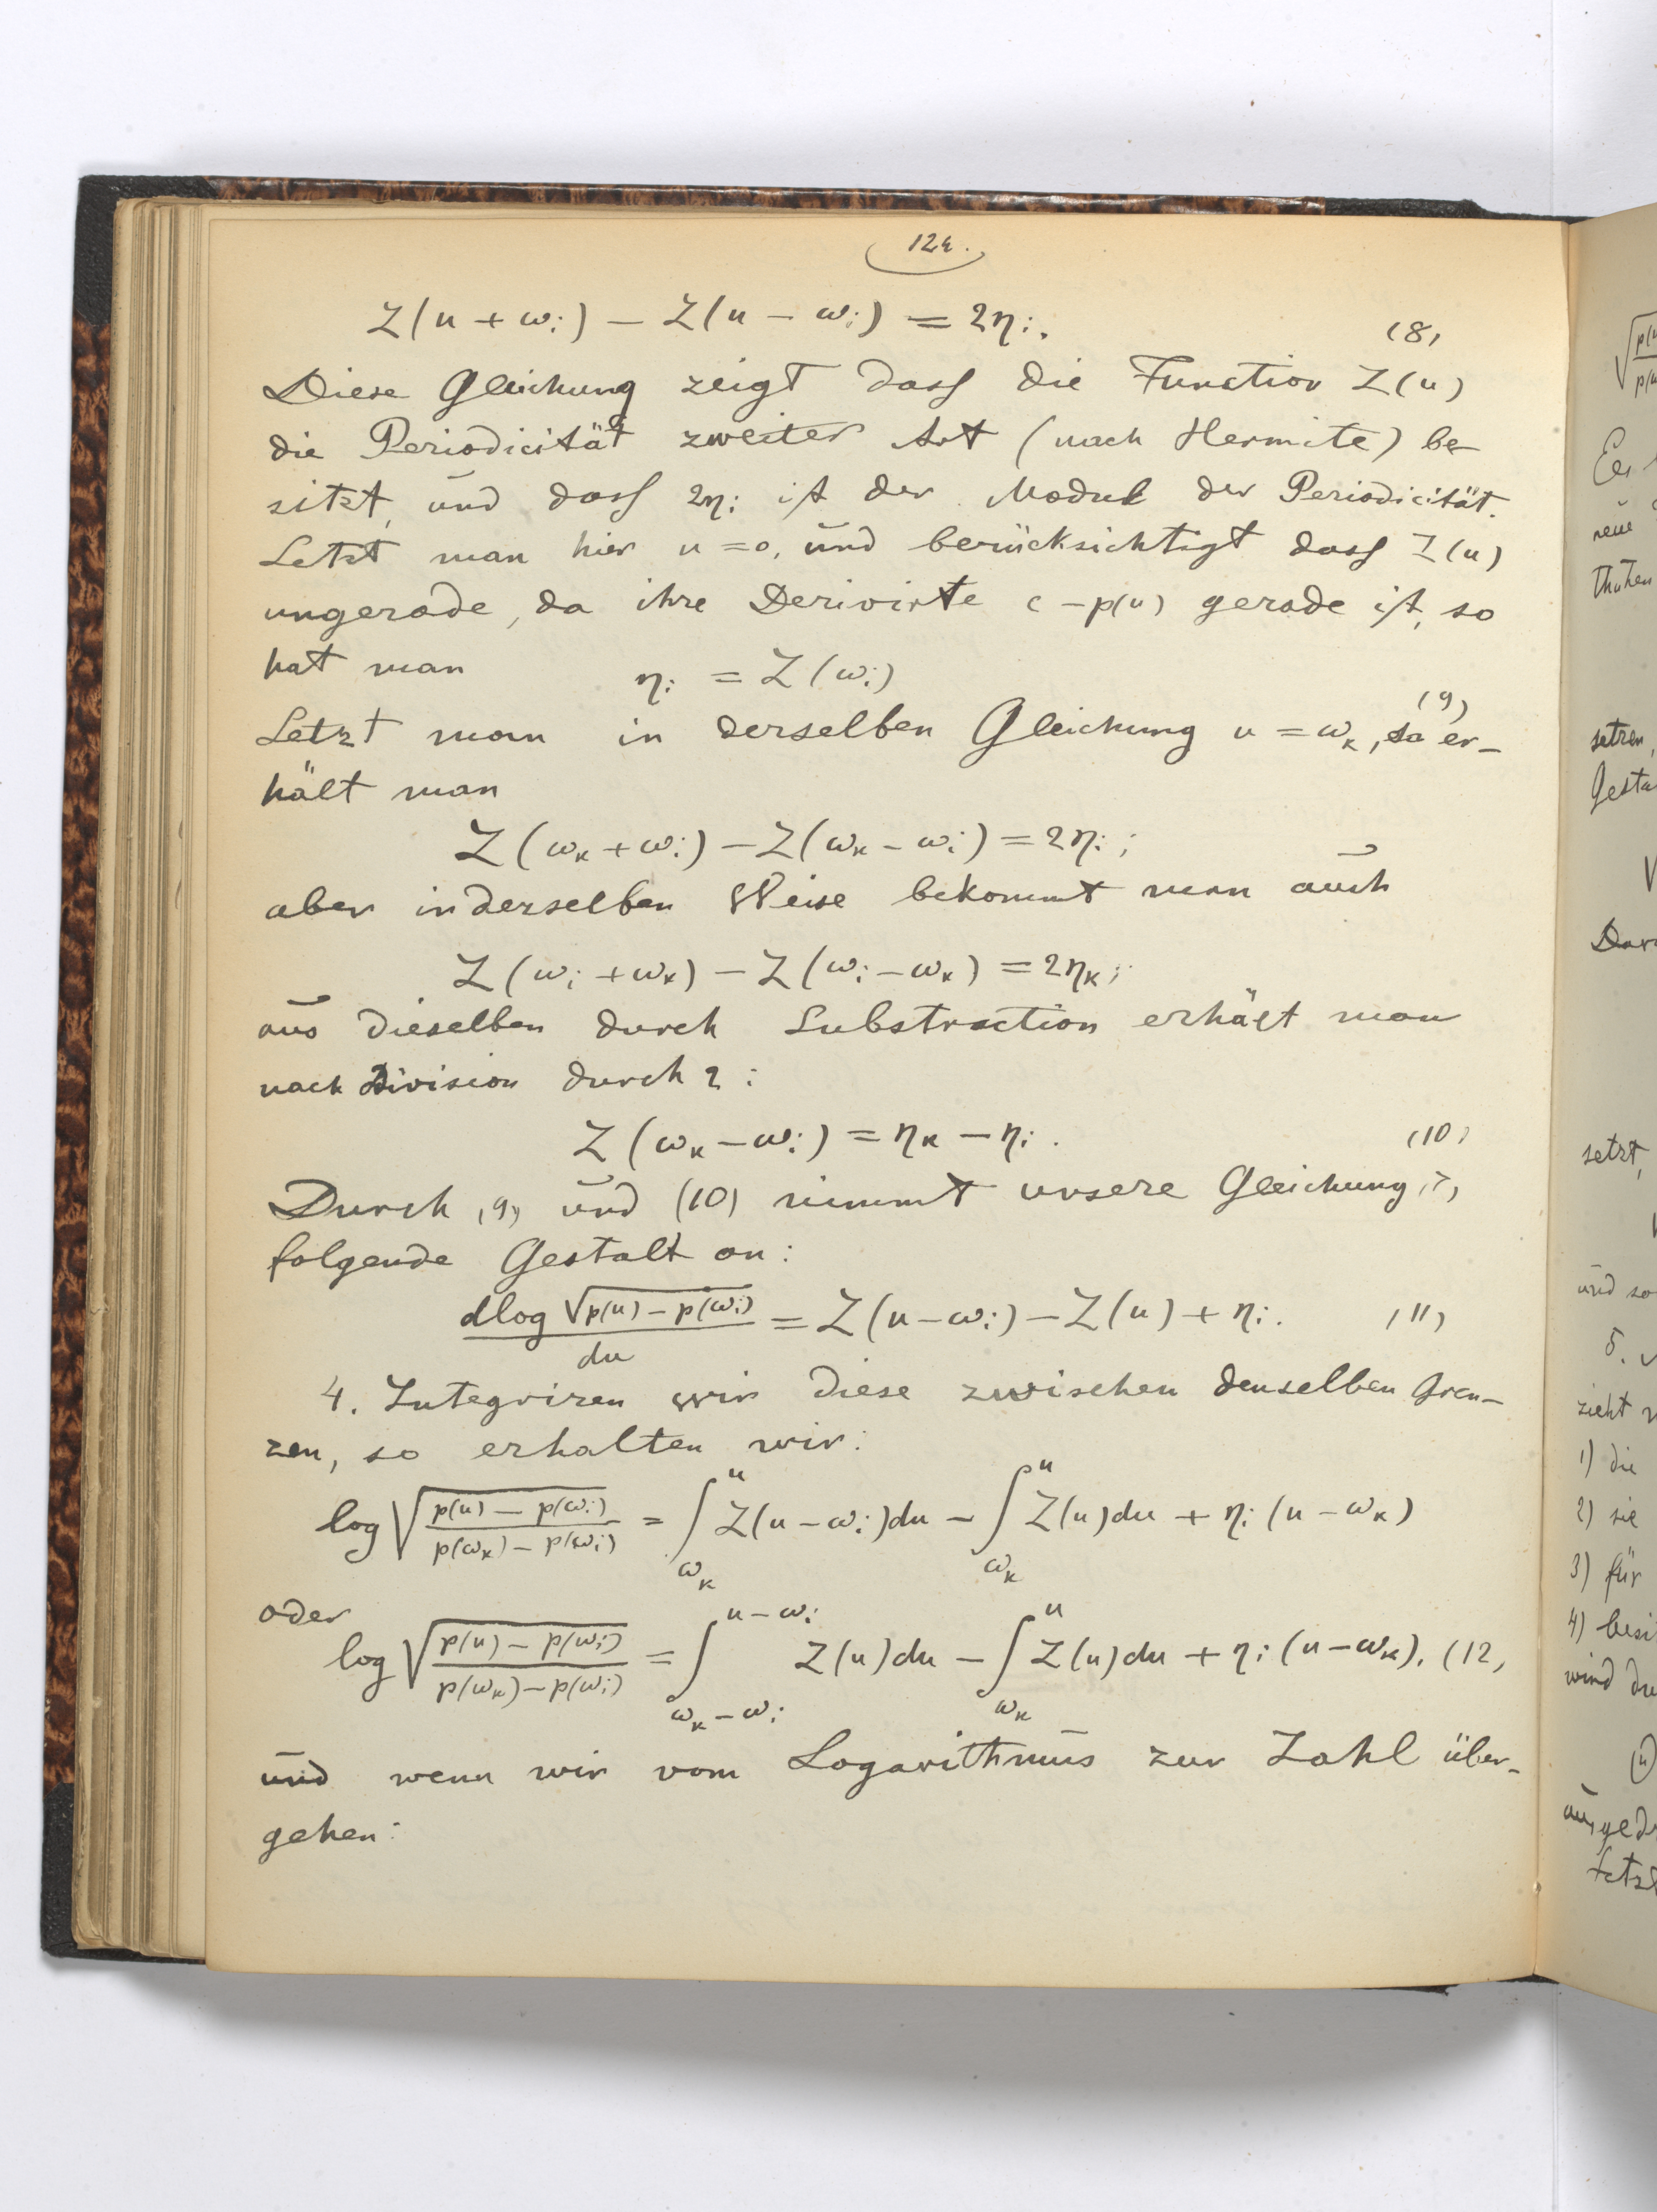 124.
Z(u + ωi) − Z(u − ωi) = 2ηi. (8)
Diese Gleichung zeigt dass die Function Z(u)
die Periodicität zweiter Art (nach Hermite) be-
sitzt, und dass 2ηi ist der Modul der Periodicität.
Setzt man hier u = 0, und berücksichtigt dass Z(u)
ungerade, da ihre Derivirte c − p(u) gerade ist, so
hat man ηi = Z(ωi) (9)
Setzt man in derselben Gleichung u = ωk, so er-
hält man
Z(ωk + ωi) − Z(ωk − ωi) = 2ηi;
aber in derselben Weise bekommt man auch
Z(ωi + ωk) − Z(ωi − ωk) = 2ηk;
aus dieselben durch Substraction erhält man
nach Division durch 2:
Z(ωk − ωi) = ηk − ηi. (10)
Durch (9) und (10) nimmt unsere Gleichung (7)
folgende Gestalt an:
dlog √(p(u) − p(ωi)) / du = Z(u − ωi) − Z(u) + ηi. (11)
4. Integriren wir diese zwischen denselben Gren-
zen, so erhalten wir:
log √((p(u) − p(ωi)) / (p(ωk) − p(ωi))) = ∫_ωk^u Z(u − ωi)du − ∫_ωk^u Z(u)du + ηi(u − ωk)
oder
log √((p(u) − p(ωi)) / (p(ωk) − p(ωi))) = ∫_(ωk − ωi)^(u − ωi) Z(u)du − ∫_ωk^u Z(u)du + ηi(u − ωk). (12)
und wenn wir vom Logarithmus zur Zahl über-
gehen:
neue
setzen,
setzt,
und so
5.
zieht
1) die
2) sie
3) für
4) besi
wird du